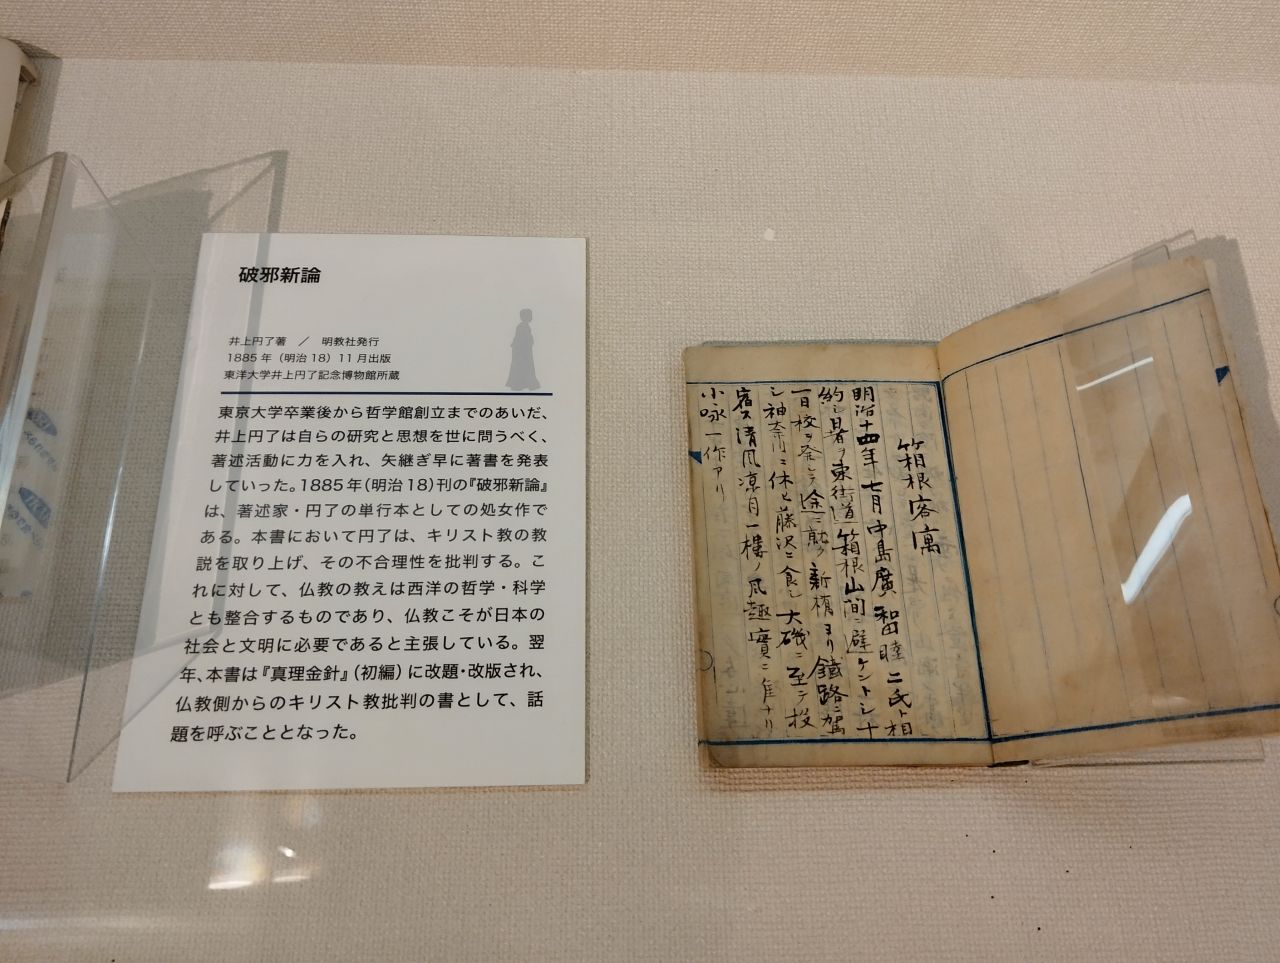 破邪新論
井上円了著 ／ 明教社発行
1885年（明治18）11月出版
東洋大学井上円了記念博物館所蔵
東京大学卒業後から哲学館創立までのあいだ、
井上円了は自らの研究と思想を世に問うべく、
著述活動に力を入れ、矢継ぎ早に著書を発表
していった。1885年（明治18）刊の『破邪新論』
は、著述家・円了の単行本としての処女作で
ある。本書において円了は、キリスト教の教
説を取り上げ、その不合理性を批判する。こ
れに対して、仏教の教えは西洋の哲学・科学
とも整合するものであり、仏教こそが日本の
社会と文明に必要であると主張している。翌
年、本書は『真理金針』（初編）に改題・改版され、
仏教側からのキリスト教批判の書として、話
題を呼ぶこととなった。
箱根客寓
明治十四年七月中島廣和田睦二氏ト相
約シ暑ヲ東街道箱根山間ニ避ケントシ十
一日校ヲ発シテ途ニ就ク新橋ヨリ鐵路ニ駕
シ神奈川ニ休ヒ藤沢ニ食シ大磯ニ至テ投
宿ス清風凉月一樓ノ風趣實ニ佳ナリ
小咏一作アリ